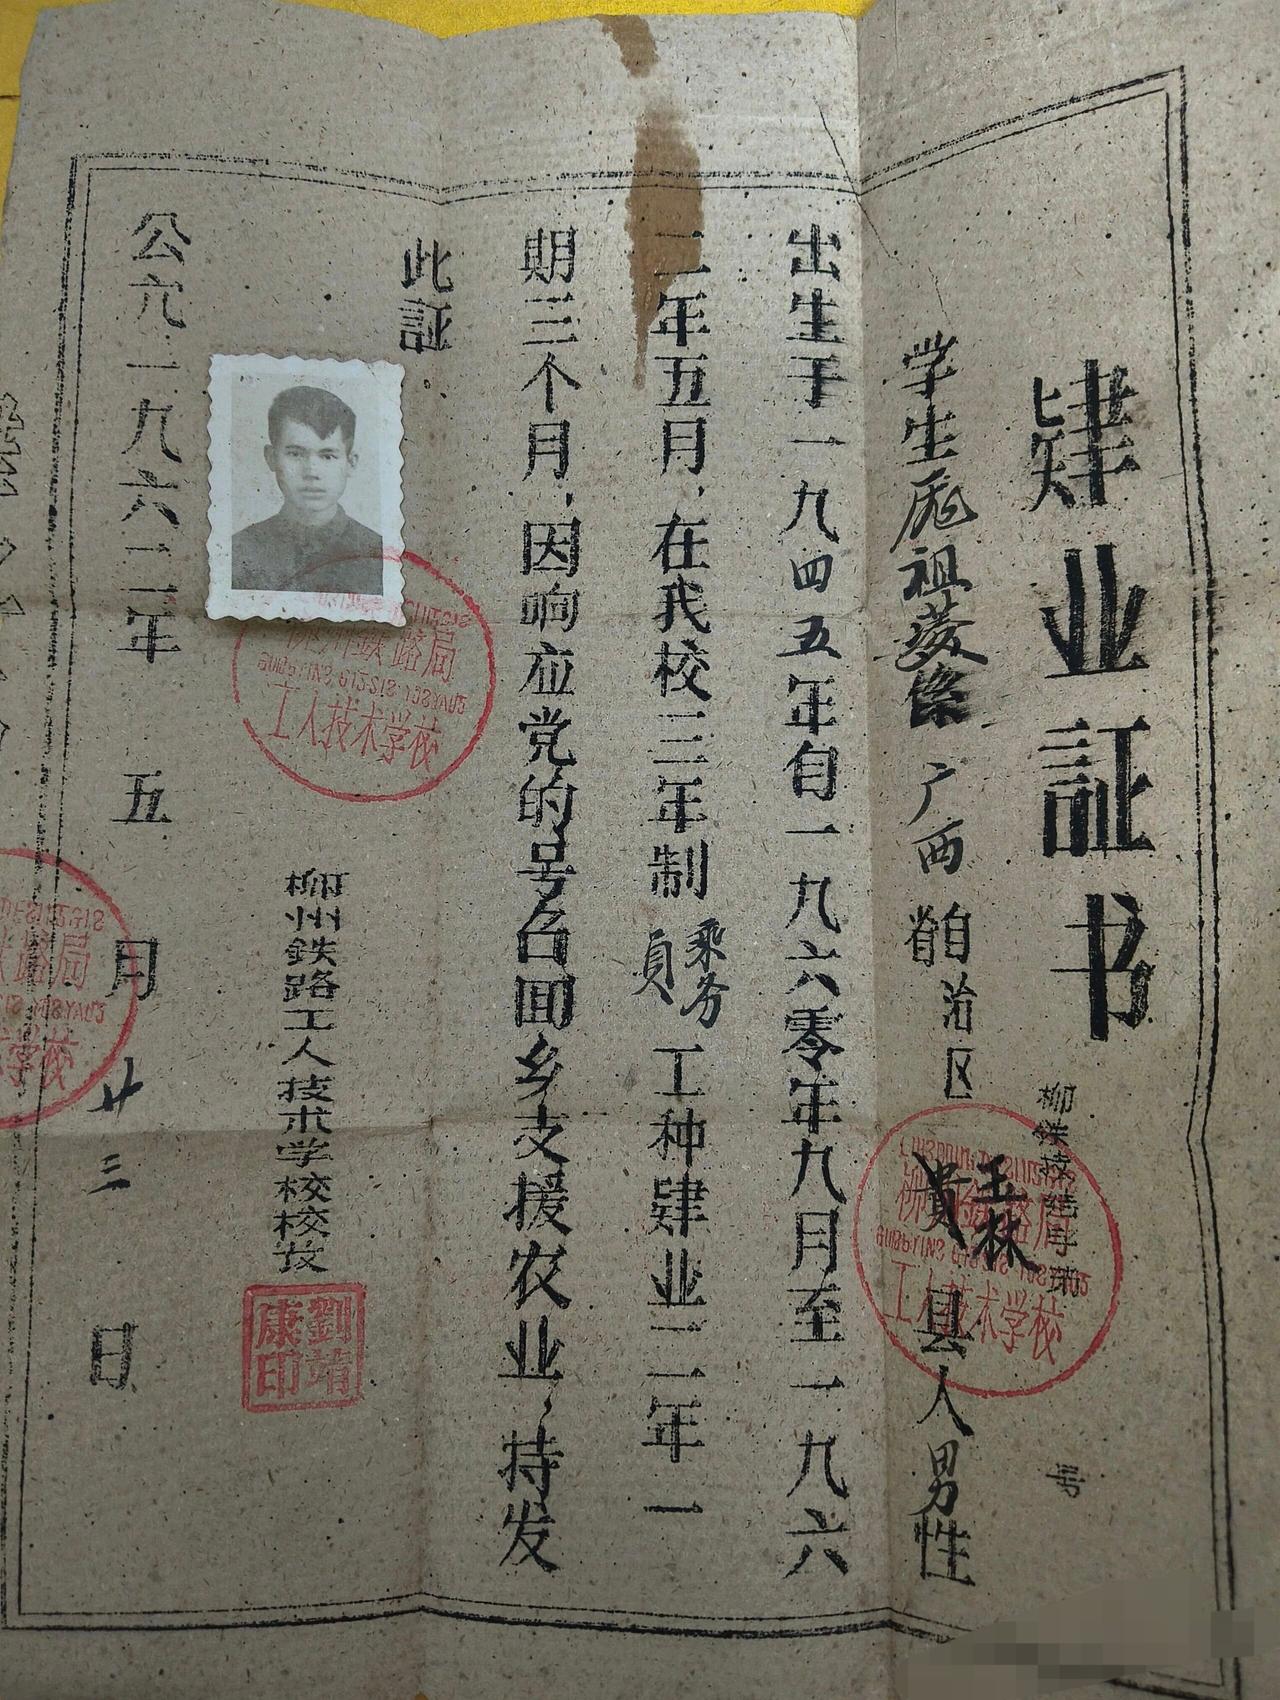 肄业証书
柳鉄技結字第 号
学生庞祖蔆係广西省自治区玉林貴县人男性
出生于一九四五年自一九六零年九月至一九六
二年五月，在我校三年制乘务員工种肄业二年一
期三个月，因响应党的号召回乡支援农业，持发
此証
柳州鉄路工人技术学校校长
劉靖康印
公元一九六二年 五 月 廿三 日
柳州鉄路局
工人技术学校
柳州鉄路局
工人技术学校
鉄路局
学校